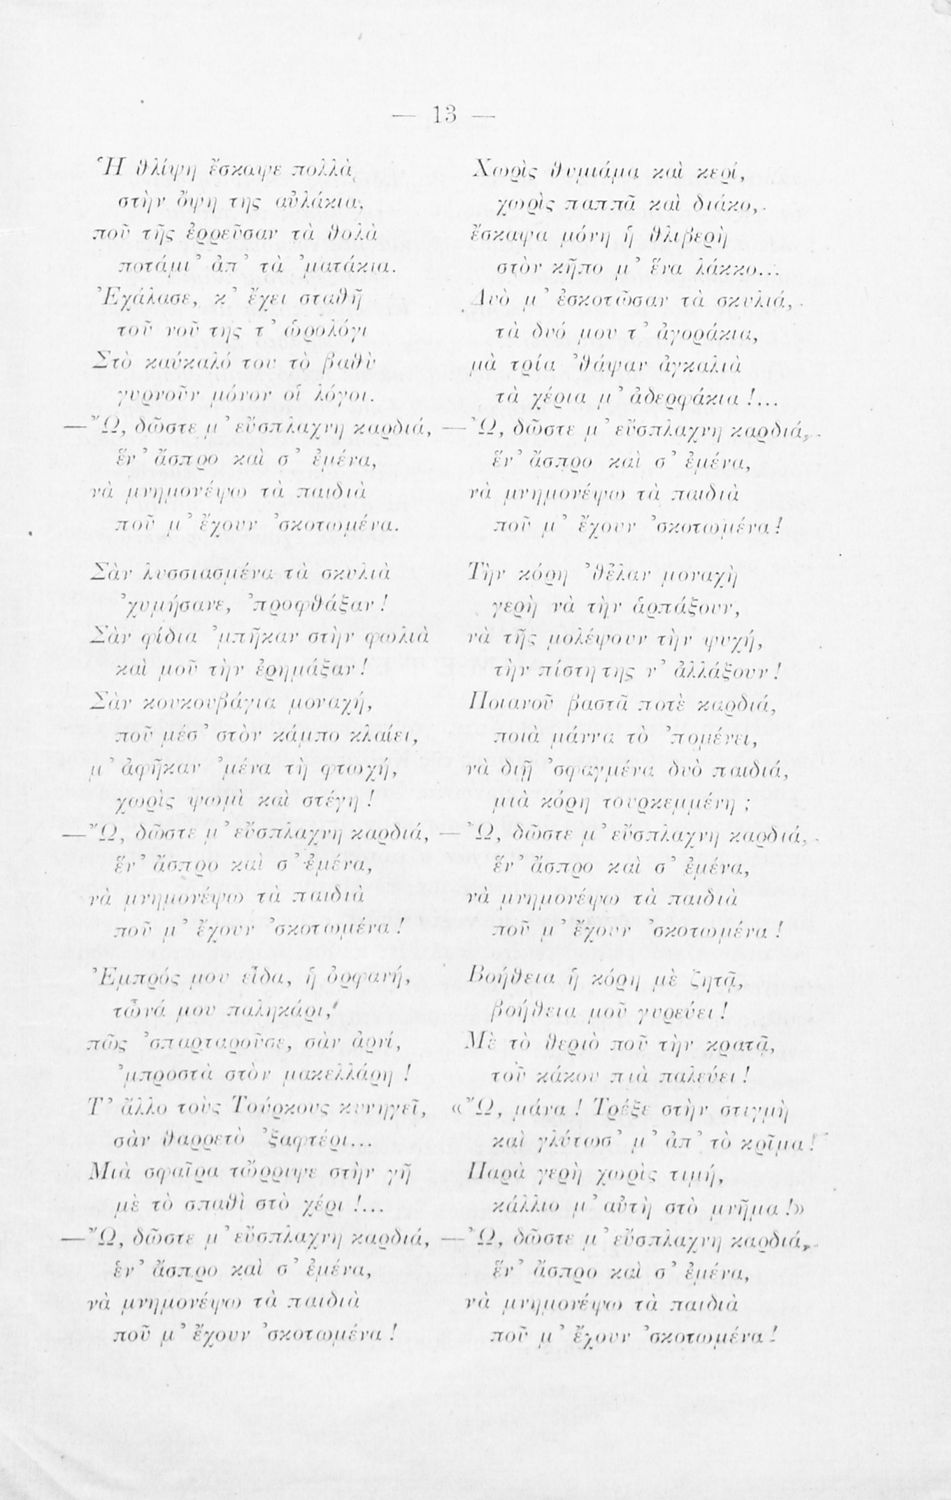 — 13 —
Ἡ θλίψη ἔσκαψε πολλὰ
στὴν ὄψη της αὐλάκια,
ποῦ τῆς ἐρρεῦσαν τὰ θολὰ
ποτάμι' ἀπ' τὰ 'ματάκια.
Ἐχάλασε, κ' ἔχει σταθῆ
τοῦ νοῦ της τ' ὡρολόγι
Στὸ καύκαλό του τὸ βαθὺ
γυρνοῦν μόνον οἱ λόγοι.
—Ὤ, δῶστε μ' εὔσπλαχνη καρδιά,
ἕν' ἄσπρο καὶ σ' ἐμένα,
νὰ μνημονέψω τὰ παιδιὰ
ποῦ μ' ἔχουν 'σκοτωμένα.
Σὰν λυσσιασμένα τὰ σκυλιὰ
'χυμήσανε, 'προφθάξαν!
Σὰν φίδια 'μπῆκαν στὴν φωλιὰ
καὶ μοῦ τὴν ἐρημάξαν!
Σὰν κουκουβάγια μοναχή,
ποῦ μέσ' στὸν κάμπο κλαίει,
μ' ἀφῆκαν 'μένα τὴ φτωχή,
χωρὶς ψωμὶ καὶ στέγη!
—Ὤ, δῶστε μ' εὔσπλαχνη καρδιά,
ἕν' ἄσπρο καὶ σ' ἐμένα,
νὰ μνημονέψω τὰ παιδιὰ
ποῦ μ' ἔχουν 'σκοτωμένα!
Ἐμπρός μου εἶδα, ἡ ὀρφανή,
τὦνά μου παληκάρι,
πῶς 'σπαρταροῦσε, σὰν ἀρνί,
'μπροστὰ στὸν μακελλάρη!
Τ' ἄλλο τοὺς Τούρκους κυνηγεῖ,
σὰν θαρρετὸ 'ξαφτέρι...
Μιὰ σφαῖρα τὤρριψε στὴν γῆ
μὲ τὸ σπαθὶ στὸ χέρι!...
—Ὤ, δῶστε μ' εὔσπλαχνη καρδιά,
ἕν' ἄσπρο καὶ σ' ἐμένα,
νὰ μνημονέψω τὰ παιδιὰ
ποῦ μ' ἔχουν 'σκοτωμένα!
Χωρὶς θυμιάμα καὶ κερί,
χωρὶς παππᾶ καὶ διάκο,
ἔσκαψα μόνη ἡ θλιβερὴ
στὸν κῆπο μ' ἕνα λάκκο...
Δυὸ μ' ἐσκοτῶσαν τὰ σκυλιά,
τὰ δυό μου τ' ἀγοράκια,
μὰ τρία 'θάψαν ἀγκαλιὰ
τὰ χέρια μ' ἀδερφάκια!...
—Ὤ, δῶστε μ' εὔσπλαχνη καρδιά,
ἕν' ἄσπρο καὶ σ' ἐμένα,
νὰ μνημονέψω τὰ παιδιὰ
ποῦ μ' ἔχουν 'σκοτωμένα!
Τὴν κόρη 'θέλαν μοναχὴ
γερὴ νὰ τὴν ἁρπάξουν,
νὰ τῆς μολέψουν τὴν ψυχή,
τὴν πίστη της ν' ἀλλάξουν!
Ποιανοῦ βαστᾶ ποτὲ καρδιά,
ποιὰ μάννα τὸ 'πομένει,
νὰ διῇ 'σφαγμένα δυὸ παιδιά,
μιὰ κόρη τουρκεμμένη;
—Ὤ, δῶστε μ' εὔσπλαχνη καρδιά,
ἕν' ἄσπρο καὶ σ' ἐμένα,
νὰ μνημονέψω τὰ παιδιὰ
ποῦ μ' ἔχουν 'σκοτωμένα!
Βοήθεια ἡ κόρη μὲ ζητᾷ,
βοήθεια μοῦ γυρεύει!
Μὲ τὸ θεριὸ ποῦ τὴν κρατᾷ,
τοῦ κάκου πιὰ παλεύει!
«Ὤ, μάνα! Τρέξε στὴν στιγμὴ
καὶ γλύτωσ' μ' ἀπ' τὸ κρῖμα!
Παρὰ γερὴ χωρὶς τιμή,
κάλλιο μ' αὐτὴ στὸ μνῆμα!»
—Ὤ, δῶστε μ' εὔσπλαχνη καρδιά,
ἕν' ἄσπρο καὶ σ' ἐμένα,
νὰ μνημονέψω τὰ παιδιὰ
ποῦ μ' ἔχουν 'σκοτωμένα!